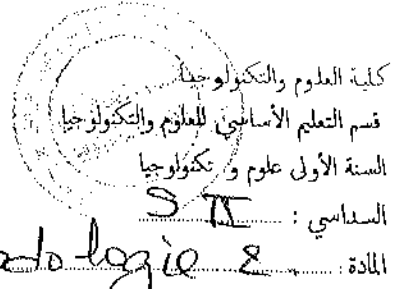 كلية العلوم والتكنولوجيا
قسم التعليم الأساسي للعلوم والتكنولوجيا
السنة الأولى علوم و تكنولوجيا
السداسي : S II
المادة : dologie 2